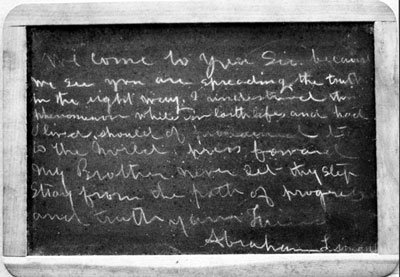 We Come to you Sir because
we see you are spreading the truth
in the right way. I understood the
phenomenon while in earth life, and had
I lived, should of proclaimed it
to the World. press forward
My Brother never let thy step
Stray from the path of progress
and truth your Friend
Abraham Lincoln